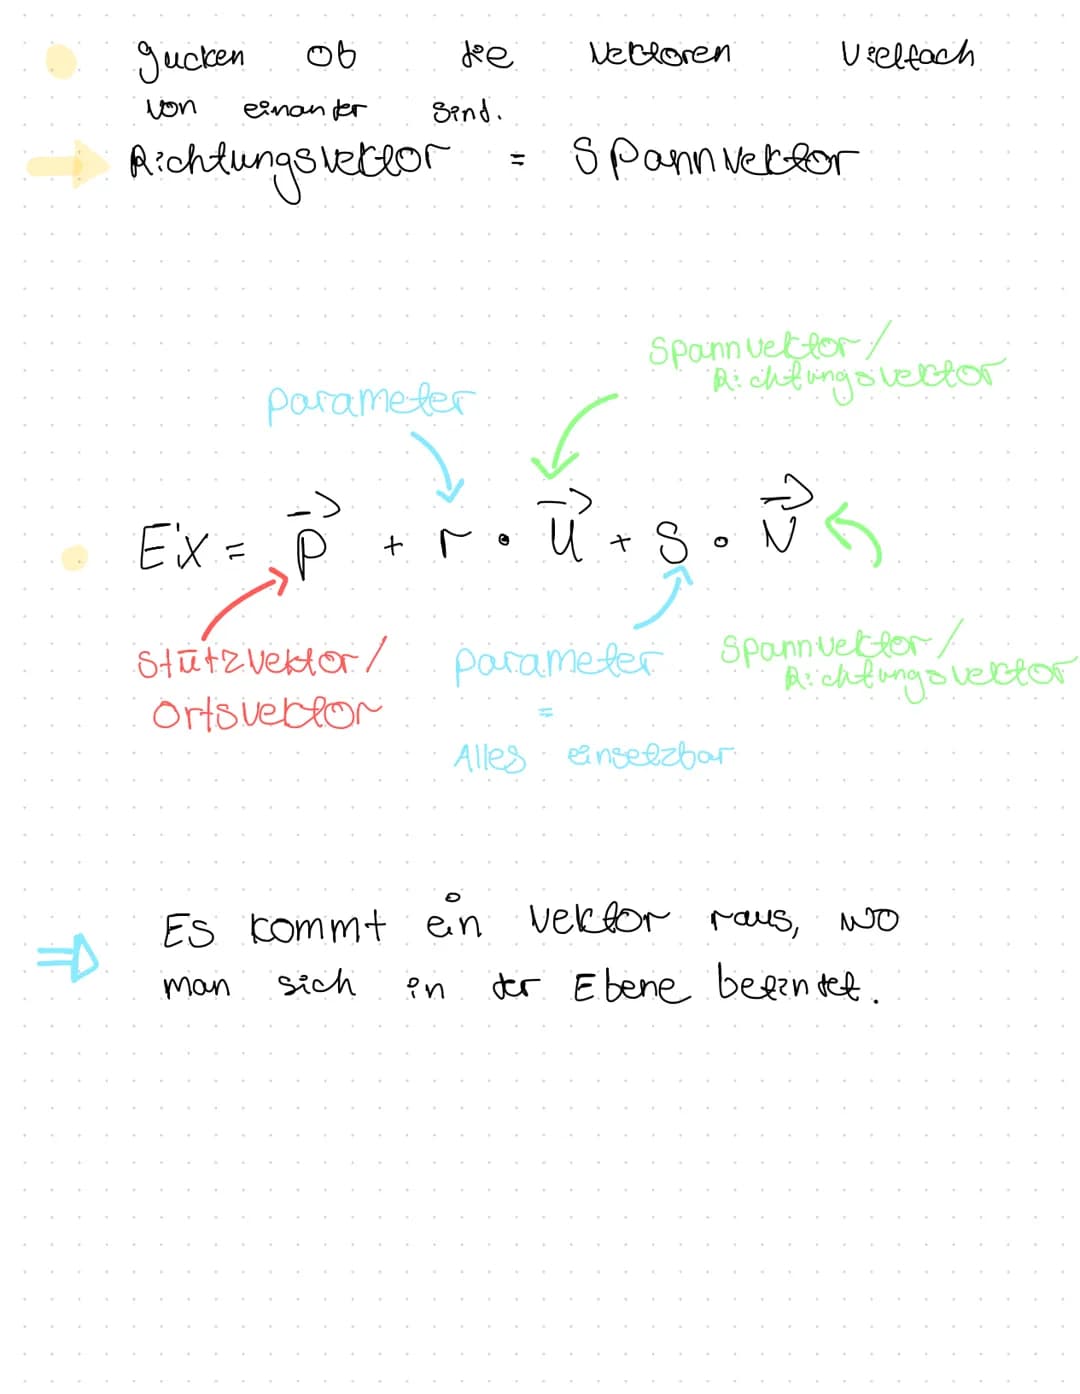 gucken ob die Vektoren Vielfach
von einander sind.
Richtungsvektor = Spannvektor
Spannvektor/
Richtungsvektor
parameter
E:x = p⃗ + r • u⃗ + s • v⃗
Stützvektor/
Ortsvektor
parameter
=
Alles einsetzbar
Spannvektor/
Richtungsvektor
Es kommt ein Vektor raus, wo
man sich in der Ebene befindet.